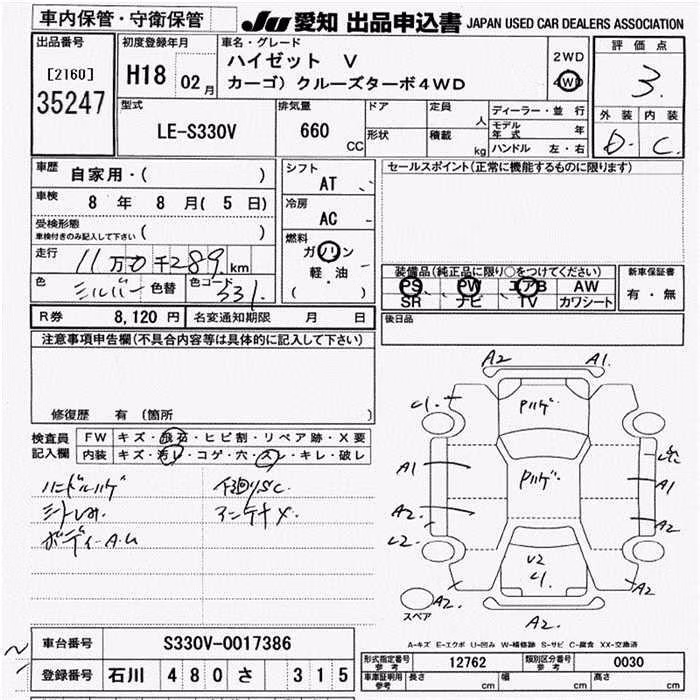 車内保管・守衛保管
JU 愛知 出品申込書 JAPAN USED CAR DEALERS ASSOCIATION
出品番号
[2160]
35247
初度登録年月
H18 02月
車名・グレード
ハイゼット V
カーゴ) クルーズターボ4WD
2WD
4WD
評価点
3.
外装 内装
D. C.
型式
LE-S330V
排気量
660
CC
ドア 定員 人
形状 積載 kg
ディーラー・並行
モデル年式 年
ハンドル 左・右
車歴 自家用・( )
車検 8年 8月( 5日)
受検形態
車検付きのみ記入して下さい ( )
走行 11万0千289km
色 シルバー 色替 色コード S31.
シフト
AT
冷房
AC
燃料
ガソリン
軽・油
( )
セールスポイント(正常に機能するものに限ります)
装備品(純正品に限り○をつけてください)
PS PW エアB AW
SR ナビ TV カワシート
新車保証書
有・無
後日品
R券 8,120円 名変通知期限 月 日
注意事項申告欄(不具合内容等は具体的に記入して下さい)
修復歴 有 (箇所 )
検査員
記入欄
FW キズ・飛石・ヒビ割・リペア跡・X要
内装 キズ・汚レ・コゲ・穴・スレ・キレ・破レ
ハンドルハゲ 下廻りSC.
アンテナX
ボディーA.U
A2 A1.
Pハゲ
A1
Pハゲ
A1
A2.
A2.
U2
A2.
A2.
A2.
スペア
A-キズ E-エクボ U-凹み W-補修跡 S-サビ C-腐食 XX-交換済
車台番号 S330V-0017386
登録番号 石川 480 さ 315
形式指定番号 参考 12762 類別区分番号 参考 0030
車庫証明用 参考 長さ cm 幅 cm 高さ cm